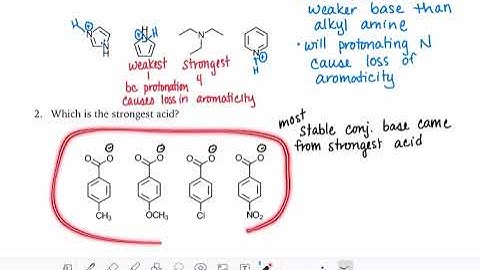 weaker base than
alkyl amine
• will protonating N
cause loss of
aromaticity
H
N
N
H
N
H
N
N
H
weakest strongest
1 4
bc protonation
causes loss in aromaticity
2. Which is the strongest acid?
most
stable conj. base came
from strongest acid
O O
O O
O O
O O
CH3
OCH3
Cl
NO2